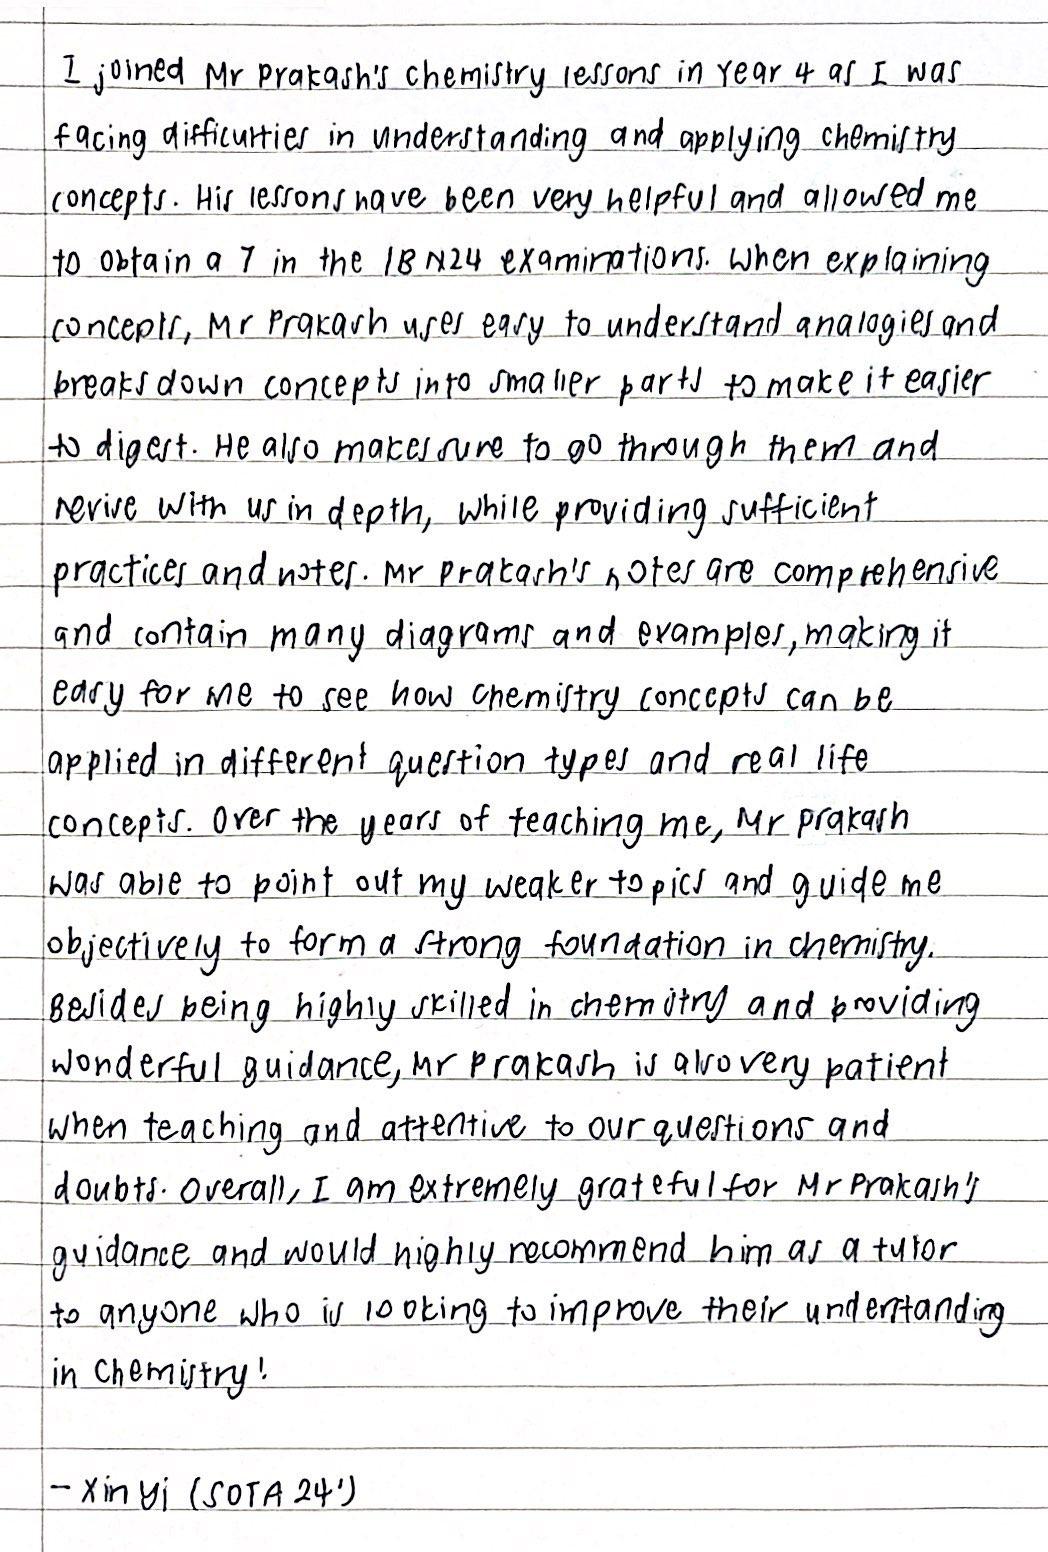 I joined Mr Prakash's chemistry lessons in Year 4 as I was
facing difficulties in understanding and applying chemistry
concepts. His lessons have been very helpful and allowed me
to obtain a 7 in the IB N24 examinations. When explaining
concepts, Mr Prakash uses easy to understand analogies and
breaks down concepts into smaller parts to make it easier
to digest. He also makes sure to go through them and
revise with us in depth, while providing sufficient
practices and notes. Mr Prakash's notes are comprehensive
and contain many diagrams and examples, making it
easy for me to see how chemistry concepts can be
applied in different question types and real life
concepts. Over the years of teaching me, Mr Prakash
was able to point out my weaker topics and guide me
objectively to form a strong foundation in chemistry.
Besides being highly skilled in chemistry and providing
wonderful guidance, Mr Prakash is also very patient
when teaching and attentive to our questions and
doubts. Overall, I am extremely grateful for Mr Prakash's
guidance and would highly recommend him as a tutor
to anyone who is looking to improve their understanding
in Chemistry!
- Xin Yi (SOTA 24')